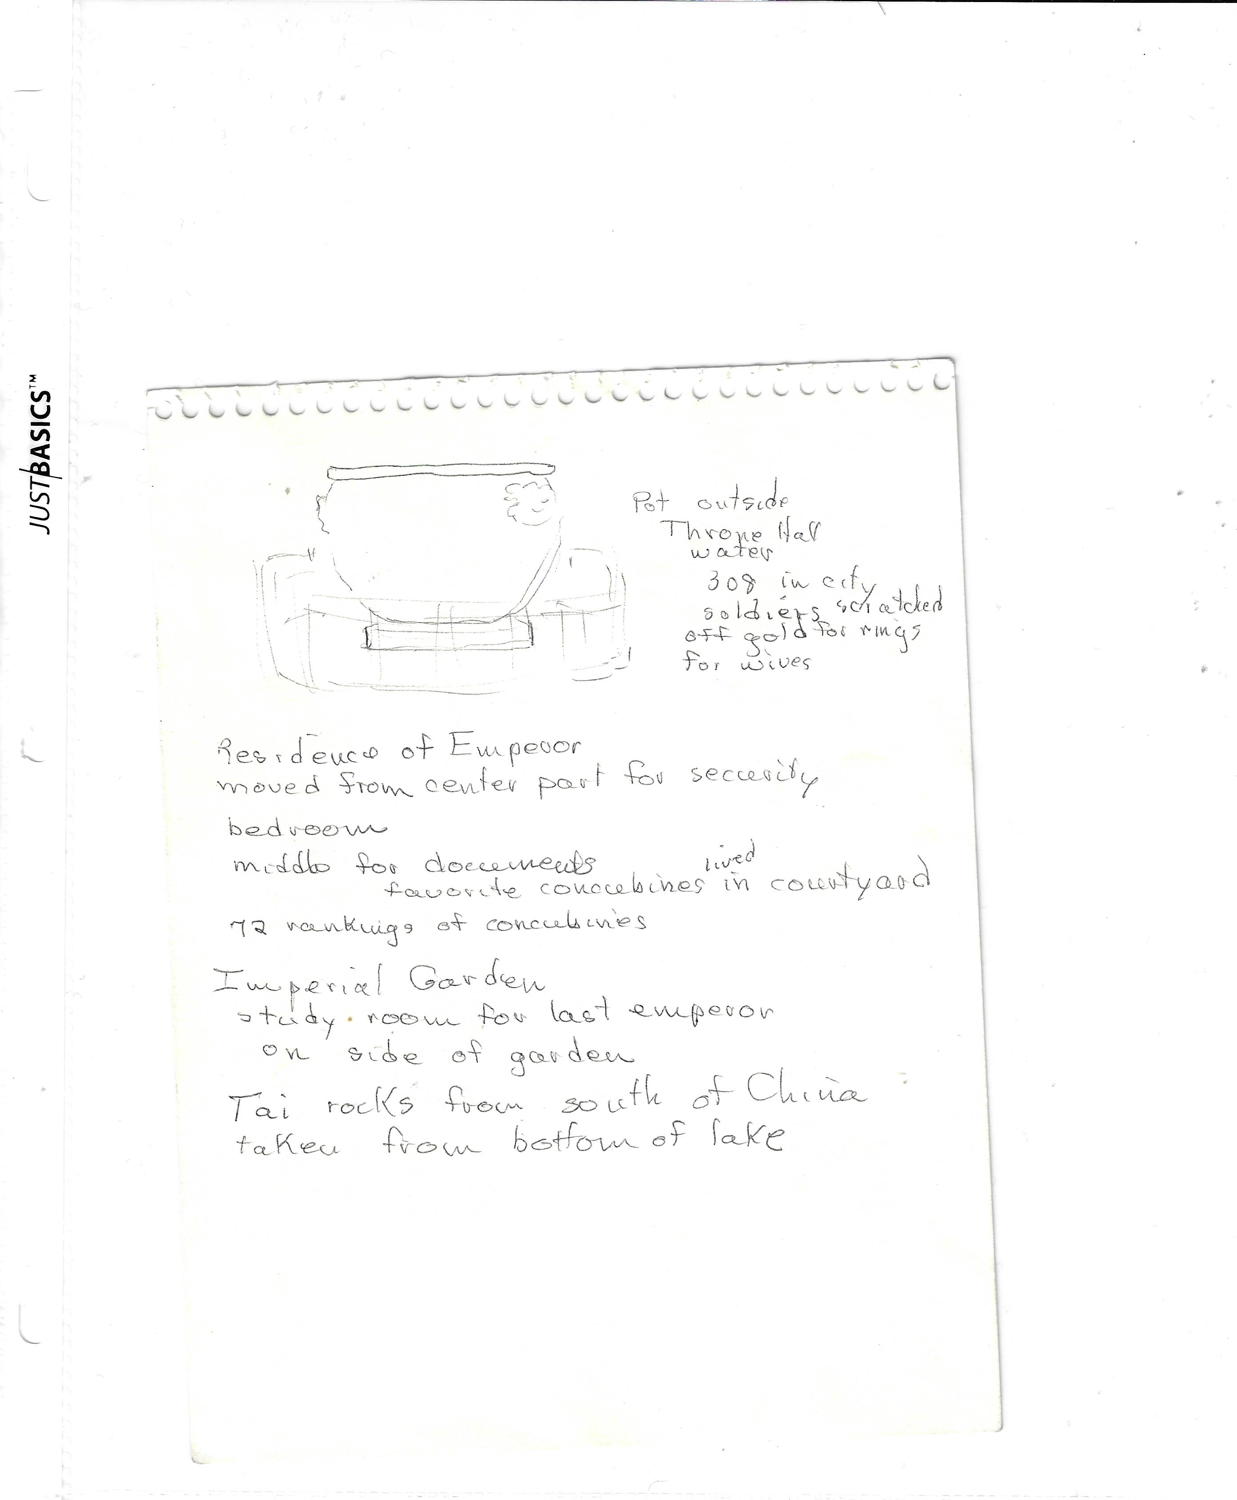 JUST BASICS™
Pot outside
Throne Hall
water
308 in city
soldiers scratched
off gold for rings
for wives
Residence of Emperor
moved from center part for security
bedroom
middle for documents
lived
favorite concubines in courtyard
72 rankings of concubines
Imperial Garden
study room for last emperor
on side of garden
Tai rocks from south of China
taken from bottom of lake